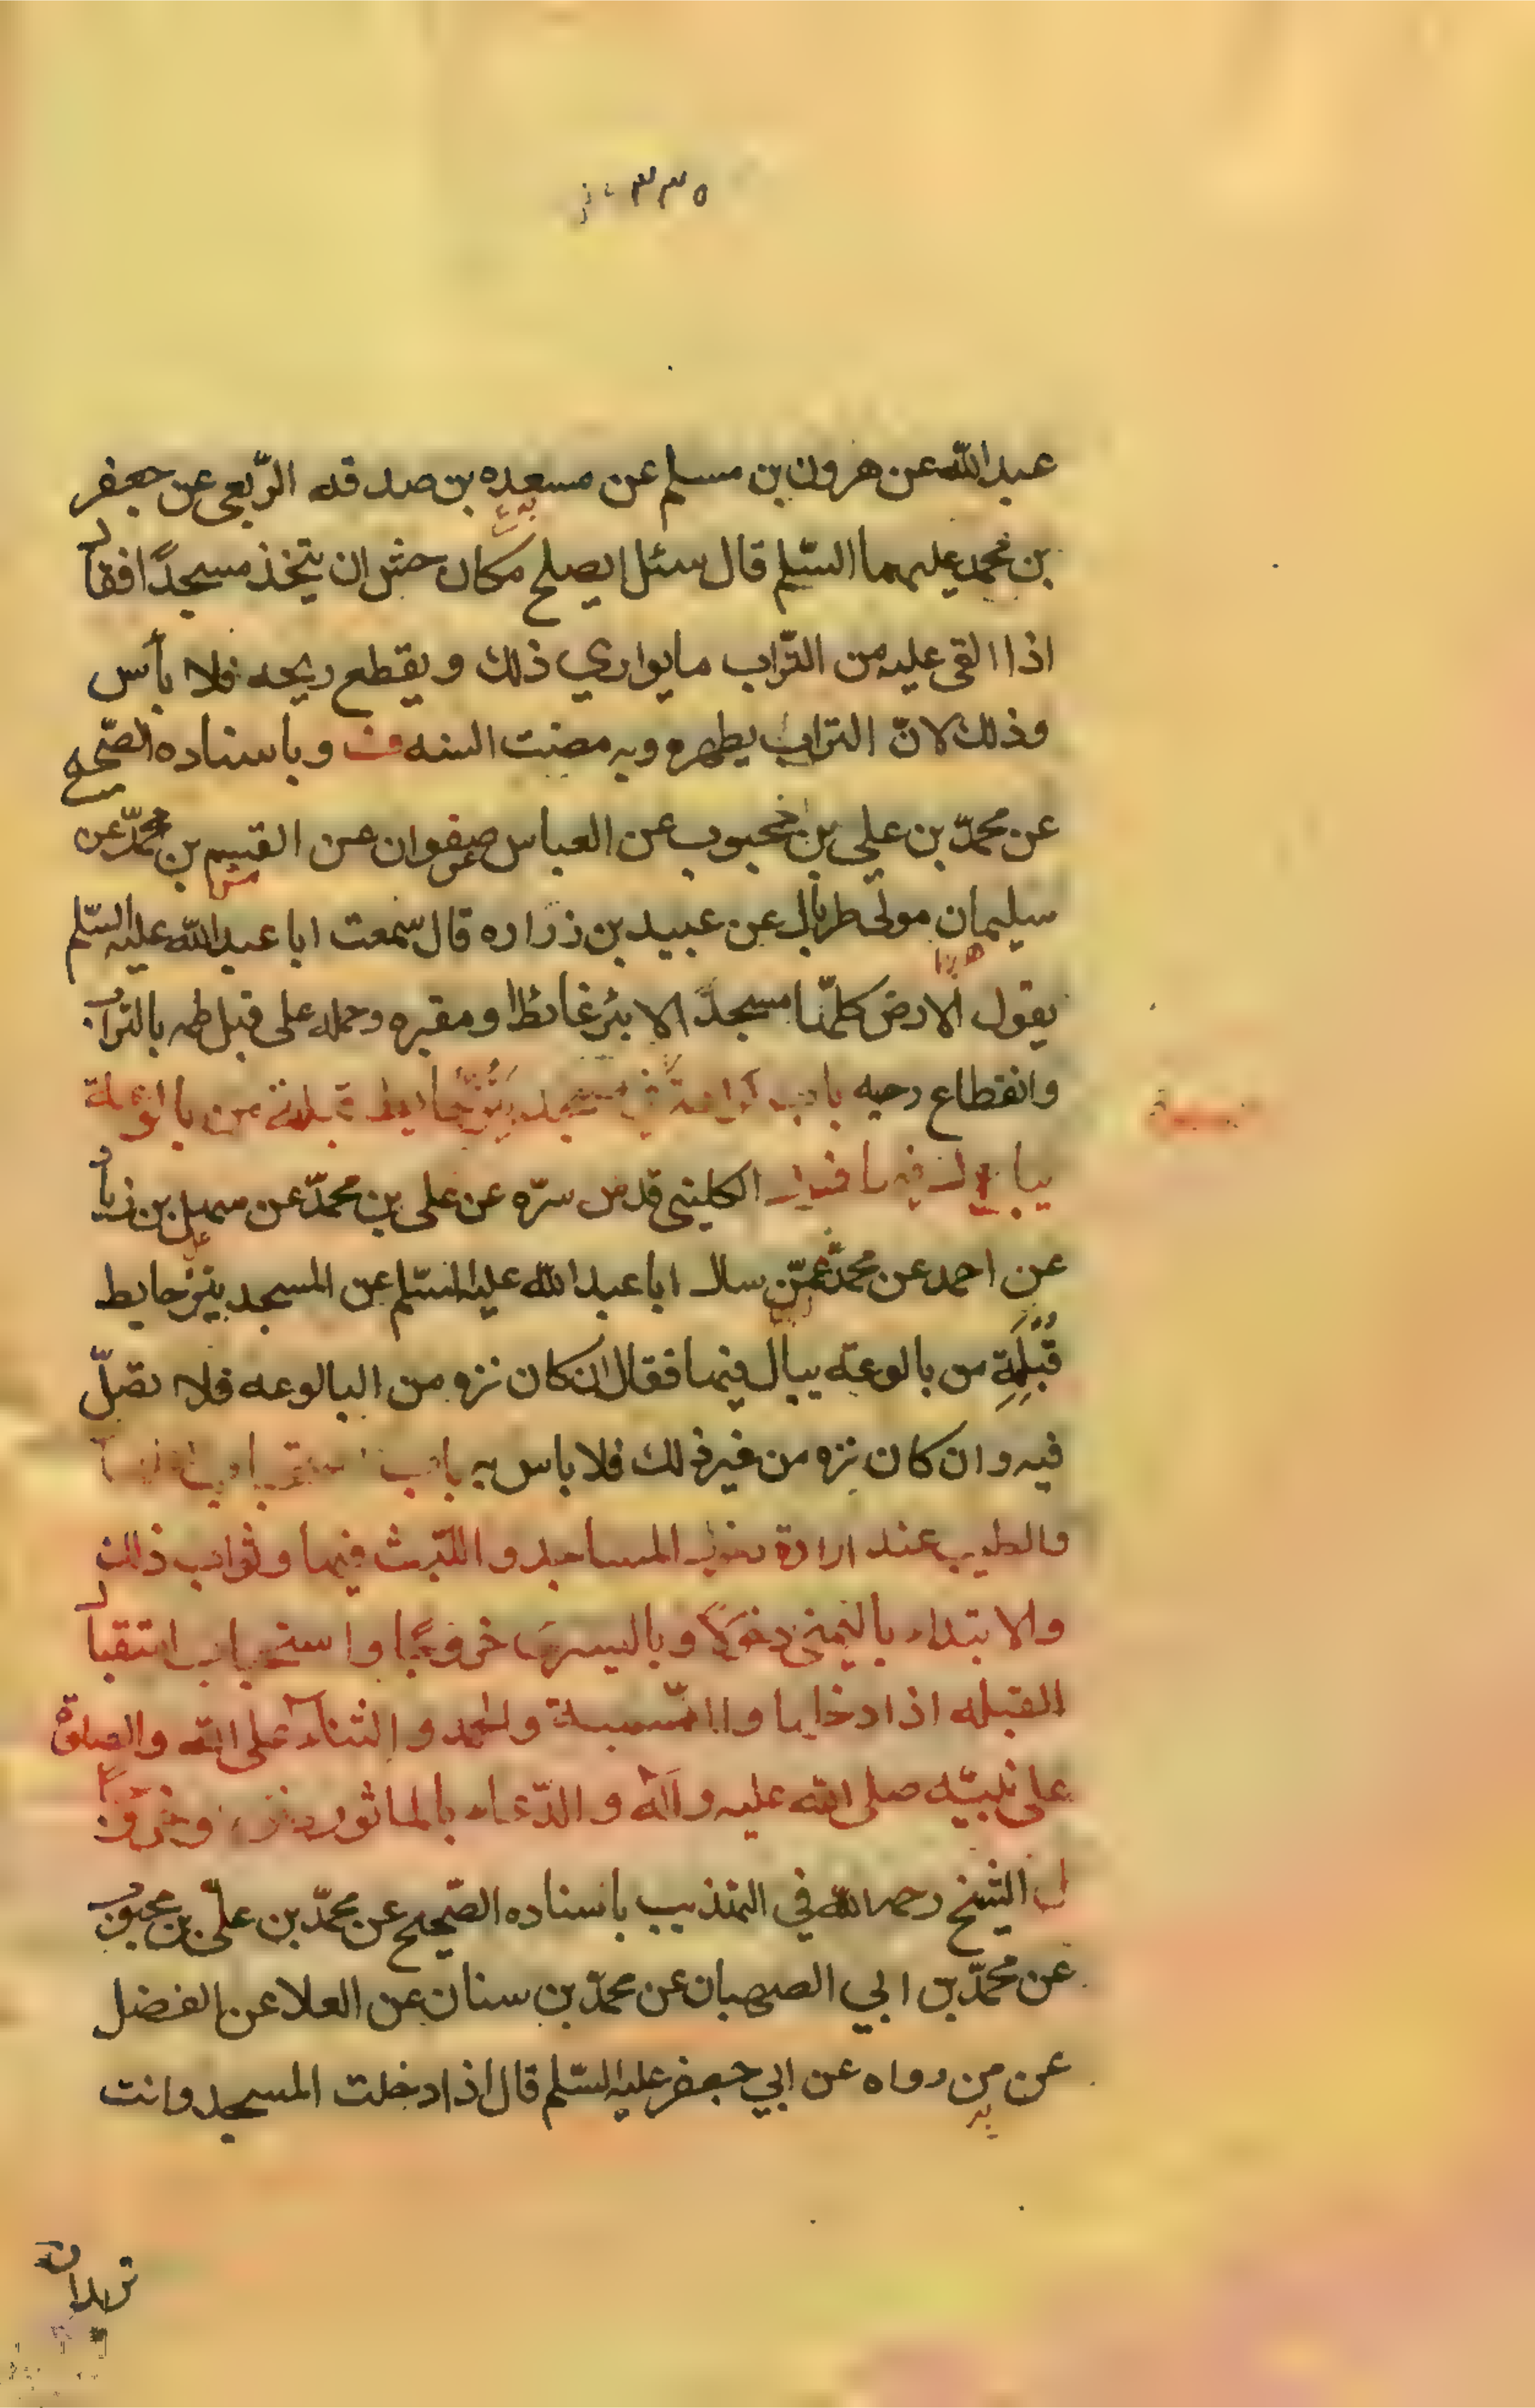 ٣٣٥
عبد الله عن هرون بن مسلم عن مسعده بن صدقه الرّبعى عن جعفر
بن محمد عليهما السّلم قال سئل ايصلح مكان حش ان يتخذ مسجدًا فقال
اذا القى عليه من التّراب ما يواري ذلك و يقطع ريحه فلا بأس
وذلك لانّ التراب يطهره وبه مضت السنه وباسناده الصّحيح
عن محمّد بن علي بن محبوب عن العباس عن صفوان عن القسم بن محمّد عن
سليمان مولى طربال عن عبيد بن زراره قال سمعت ابا عبد الله عليه السّلم
يقول الارض كلّها مسجدًا الا بئر غائط او مقبره وحمله على قبل طمه بالتراب
وانقطاع ريحه باب في مسجد ينزّ حايط قبلته من بالوعة
يبال فيها الكلينى قدس سرّه عن على بن محمّد عن سهل بن زياد
عن احمد عن محمّد عمّن سال ابا عبد الله عليه السّلم عن المسجد ينز حايط
قبلته من بالوعة يبال فيها فقال ان كان نزه من البالوعه فلا تصلّ
فيه وان كان نزه من غير ذلك فلا باس به باب
والطيب عند ارادة دخول المساجد و اللبث فيها وثواب ذلك
والابتداء باليمنى دخولًا وباليسرى خروجًا واستحباب استقبال
القبله اذا دخلها والتّسمية والحمد والثناء على الله والصلوة
على نبيّه صلى الله عليه وآله والدّعاء بالماثور وخروجًا
ل الشيخ رحمه الله في التهذيب باسناده الصّحيح عن محمّد بن علىّ بن محبوب
عن محمّد بن ابي الصهبان عن محمّد بن سنان عن العلا عن الفضل
عن من رواه عن ابي جعفر عليه السّلم قال اذا دخلت المسجد وانت
تريدان